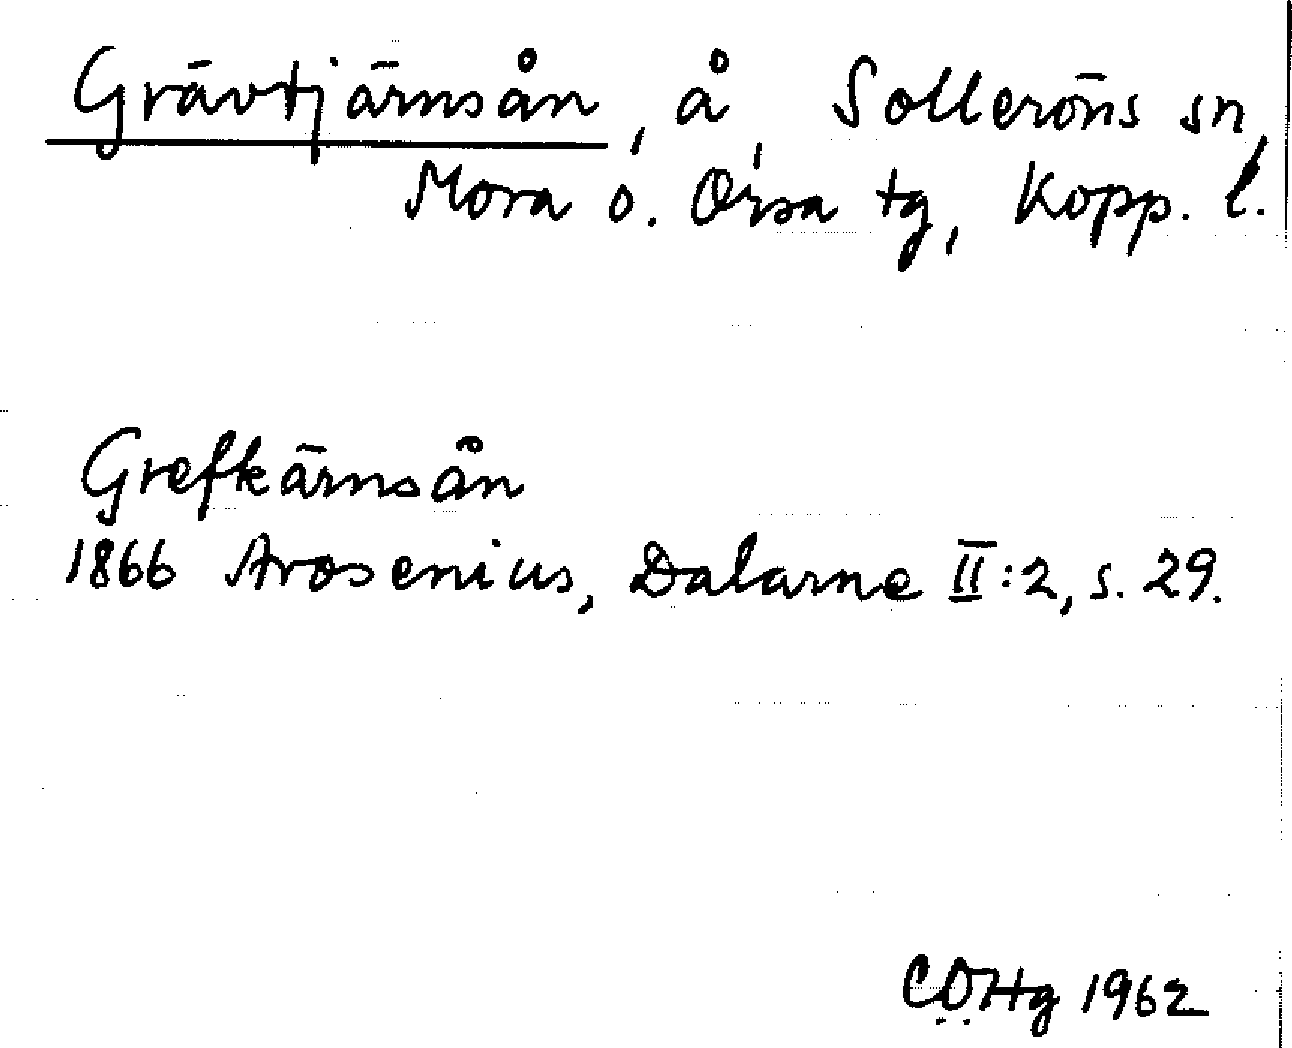 Grävtjärnsån, å, Solleröns sn,
Mora o. Orsa tg, Kopp. l.
Grefkärnsån
1866 Arosenius, Dalarne II:2, s. 29.
CDHg 1962